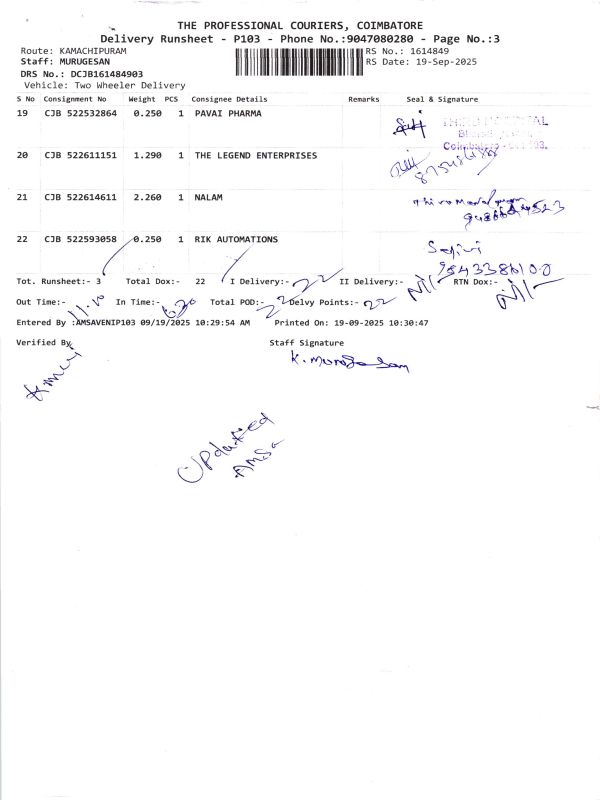 THE PROFESSIONAL COURIERS, COIMBATORE
Delivery Runsheet - P103 - Phone No.:9047080280 - Page No.:3
Route: KAMACHIPURAM RS No.: 1614849
Staff: MURUGESAN RS Date: 19-Sep-2025
DRS No.: DCJB161484903
Vehicle: Two Wheeler Delivery
S No Consignment No Weight PCS Consignee Details Remarks Seal & Signature
19 CJB 522532864 0.250 1 PAVAI PHARMA
20 CJB 522611151 1.290 1 THE LEGEND ENTERPRISES
21 CJB 522614611 2.260 1 NALAM
22 CJB 522593058 0.250 1 RIK AUTOMATIONS
Tot. Runsheet:- 3 Total Dox:- 22 I Delivery:- 22 II Delivery:- Nil RTN Dox:- Nil
Out Time:- 11.10 In Time:- 6.30 Total POD:- 22 Delvy Points:- 22
Entered By :AMSAVENIP103 09/19/2025 10:29:54 AM Printed On: 19-09-2025 10:30:47
Verified By Staff Signature
K. Murugesan
Updated